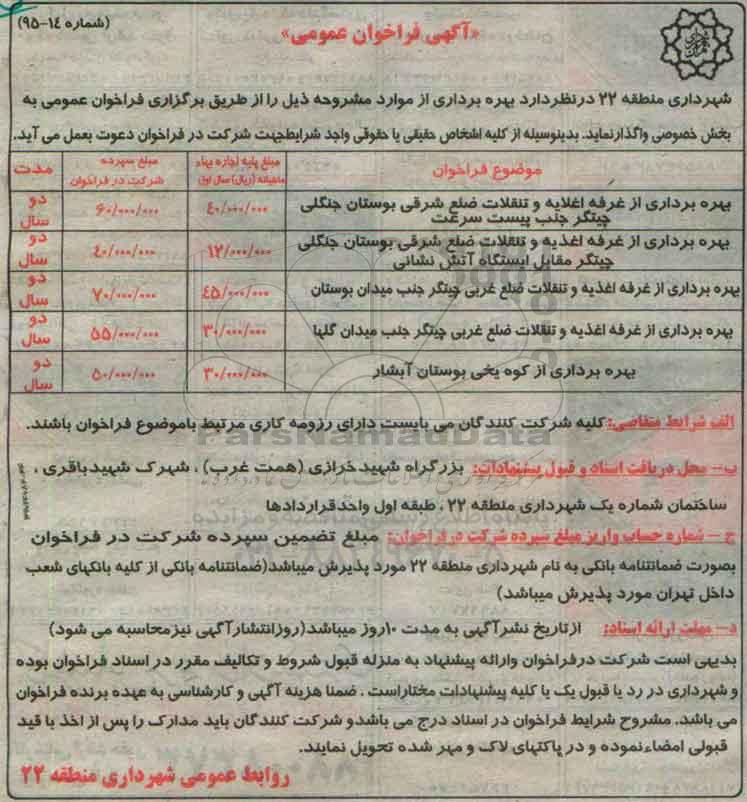 (شماره ۱۴-۹۵)
«آگهی فراخوان عمومی»
شهرداری منطقه ۲۲ درنظردارد بهره برداری از موارد مشروحه ذیل را از طریق برگزاری فراخوان عمومی به
بخش خصوصی واگذارنماید. بدینوسیله از کلیه اشخاص حقیقی یا حقوقی واجد شرایط جهت شرکت در فراخوان دعوت بعمل می آید.
موضوع فراخوان
مبلغ پایه اجاره بهاء ماهیانه (ریال) سال اول
مبلغ سپرده شرکت در فراخوان
مدت
بهره برداری از غرفه اغذیه و تنقلات ضلع شرقی بوستان جنگلی چیتگر جنب پیست سرعت
۴۰/۰۰۰/۰۰۰
۶۰/۰۰۰/۰۰۰
دو سال
بهره برداری از غرفه اغذیه و تنقلات ضلع شرقی بوستان جنگلی چیتگر مقابل ایستگاه آتش نشانی
۱۲/۰۰۰/۰۰۰
۴۰/۰۰۰/۰۰۰
دو سال
بهره برداری از غرفه اغذیه و تنقلات ضلع غربی چیتگر جنب میدان بوستان
۴۵/۰۰۰/۰۰۰
۷۰/۰۰۰/۰۰۰
دو سال
بهره برداری از غرفه اغذیه و تنقلات ضلع غربی چیتگر جنب میدان گلها
۳۰/۰۰۰/۰۰۰
۵۵/۰۰۰/۰۰۰
دو سال
بهره برداری از کوه یخی بوستان آبشار
۳۰/۰۰۰/۰۰۰
۵۰/۰۰۰/۰۰۰
دو سال
الف شرایط متقاضی: کلیه شرکت کنندگان می بایست دارای رزومه کاری مرتبط باموضوع فراخوان باشند.
ParsNamadData
ب- محل دریافت اسناد و قبول پیشنهادات: بزرگراه شهیدخرازی (همت غرب) ، شهرک شهیدباقری ،
ساختمان شماره یک شهرداری منطقه ۲۲ ، طبقه اول واحدقراردادها
ج - شماره حساب واریز مبلغ سپرده شرکت در فراخوان: مبلغ تضمین سپرده شرکت در فراخوان
بصورت ضمانتنامه بانکی به نام شهرداری منطقه ۲۲ مورد پذیرش میباشد(ضمانتنامه بانکی از کلیه بانکهای شعب
داخل تهران مورد پذیرش میباشد)
د- مهلت ارائه اسناد: ازتاریخ نشرآگهی به مدت ۱۰روز میباشد(روزانتشارآگهی نیزمحاسبه می شود)
بدیهی است شرکت درفراخوان وارائه پیشنهاد به منزله قبول شروط و تکالیف مقرر در اسناد فراخوان بوده
و شهرداری در رد یا قبول یک یا کلیه پیشنهادات مختاراست . ضمنا هزینه آگهی و کارشناسی به عهده برنده فراخوان
می باشد. مشروح شرایط فراخوان در اسناد درج می باشدو شرکت کنندگان باید مدارک را پس از اخذ با قید
قبولی امضاءنموده و در پاکتهای لاک و مهر شده تحویل نمایند.
روابط عمومی شهرداری منطقه ۲۲